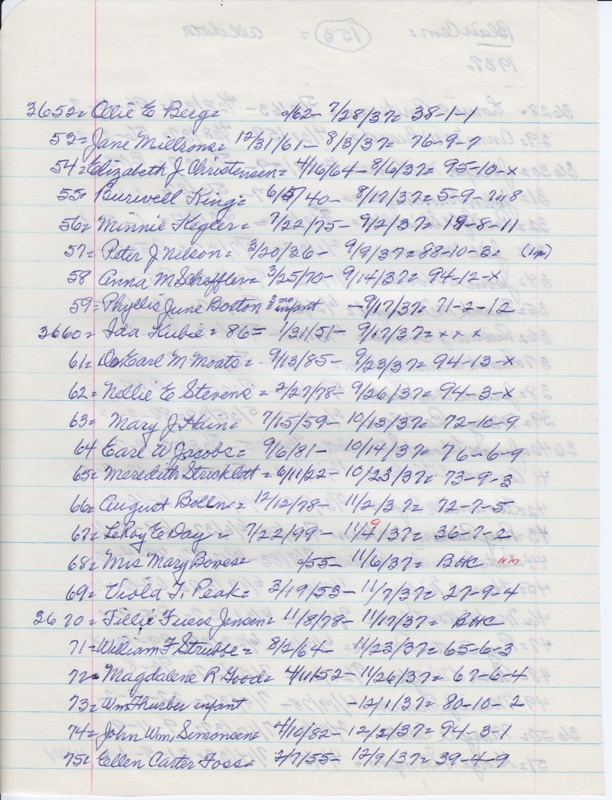 3652= Ollie E Berg= 0/62- 7/28/37= 38-1-1
53= Jane Millrons= 12/31/61- 8/3/37= 76-9-7
54= Elizabeth J. Christensen= 4/16/64- 8/6/37= 95-10-x
55= Burwell King= 6/5/40- 8/17/37= 5-9-7
56= Minnie Kegler= 7/22/75- 9/2/37= 19-8-11
57= Peter J Nelson= 3/20/36- 9/9/37= 88-10-3=
58 Anna M Scheffler= 3/25/70- 9/14/37= 94-12-x
59= Phyllis June Boston 3 mo infant -9/17/37= 71-2-12
3660= Ida Kubie= 86= 1/31/51- 9/17/37= x x x
61= Dr Earl M Moats= 9/13/85- 9/23/37= 94-13-x
62= Nellie E Stevens= 2/27/78- 9/26/37= 94-3-x
63= Mary J Hain= 7/15/59- 10/13/37= 72-10-9
64 Earl W Jacobs= 9/6/81- 10/14/37= 76-6-9
65= Meredith Stricklett= 6/11/22- 10/23/37= 73-9-3
66= August Bolln= 12/12/78- 11/2/37= 72-7-5
67= LeRoy E Day= 7/22/99- 11/9/37= 36-7-2
68= Mrs Mary Bowes= 0/55- 11/6/37= BHC
69= Viola F. Peak= 3/19/53- 11/7/37= 27-9-4
3670= Tillie Fuess Jensen= 11/8/78- 11/17/37= BHC
71= William F Strubbe= 8/2/64- 11/23/37= 65-6-3
72= Magdalene R Good= 4/11/52- 11/26/37= 67-6-4
73= Wm Thurber infant -12/1/37= 80-10-2
74= John Wm. Simonsen= 4/10/82- 12/2/37= 94-3-1
75= Ellen Carter Foss= 2/7/55- 12/9/37= 39-4-9